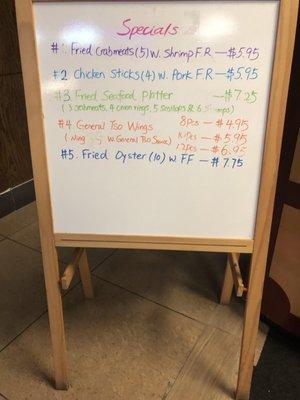 Specials
#1. Fried Crabmeats (5) w. Shrimp F.R — $5.95
#2 Chicken Sticks (4) w. Pork F.R — $5.95
#3. Fried Seafood Platter — $7.25
(3 crabmeats, 4 onion rings, 5 scallops & 6 Shrimps)
#4. General Tso Wings 8pcs — $4.95
(Wing w. General Tso Sauce) 10pcs — $5.95
12pcs — $6.95
#5. Fried Oyster (10) w. FF — $7.75